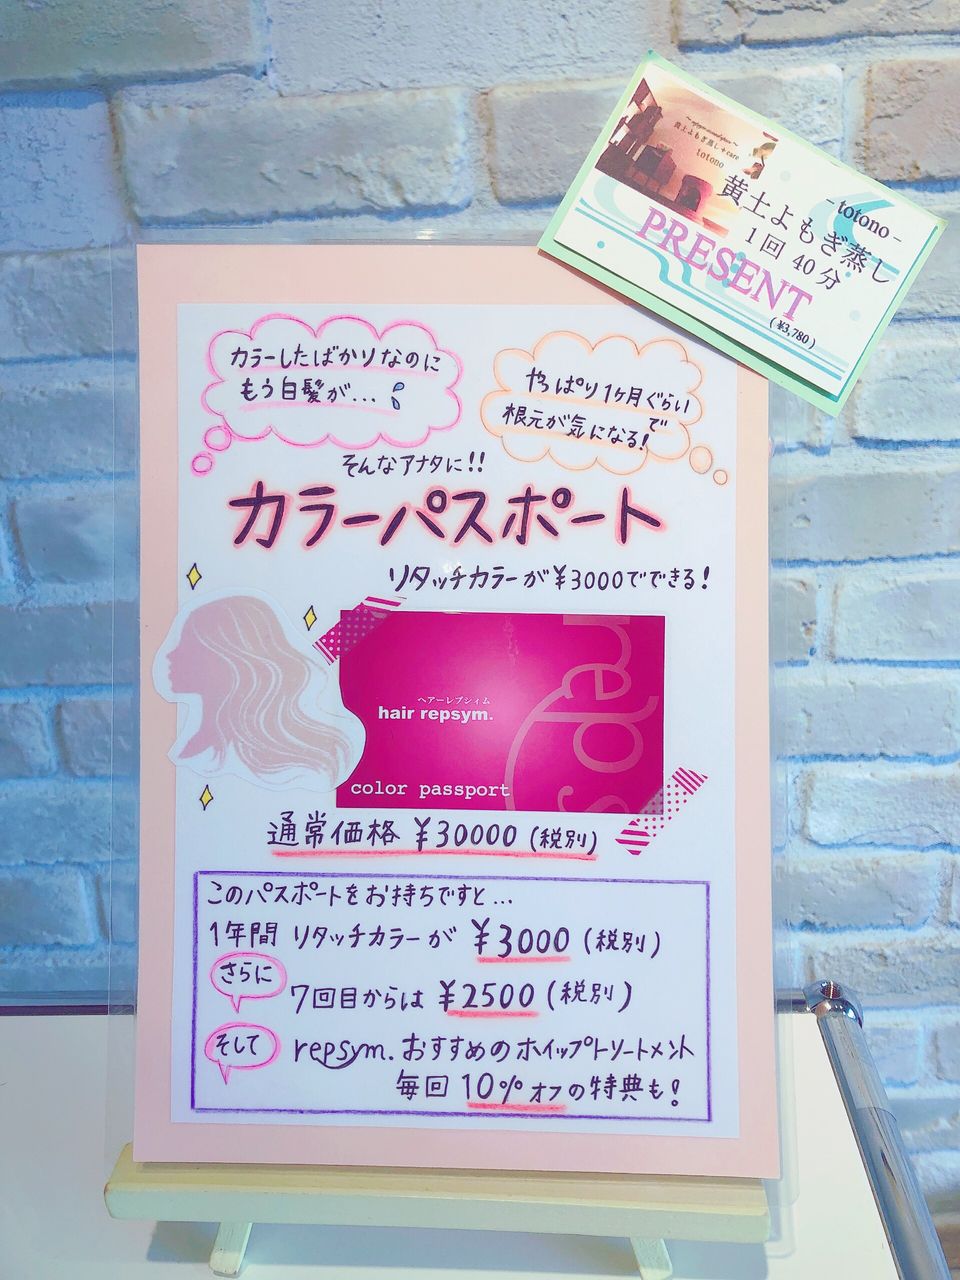 黄土よもぎ蒸し+care
totono
- totono -
黄土よもぎ蒸し
1回 40分
PRESENT
(¥3,780)
カラーしたばかりなのに
もう白髪が...
やっぱり1ヶ月ぐらいで
根元が気になる!
そんなアナタに!!
カラーパスポート
リタッチカラーが¥3000でできる!
ヘアーレプシィム
hair repsym.
reps
color passport
通常価格 ¥30000 (税別)
このパスポートをお持ちですと...
1年間 リタッチカラーが ¥3000 (税別)
さらに
7回目からは ¥2500 (税別)
そして
repsym. おすすめのホイップトリートメント
毎回 10% オフの特典も!